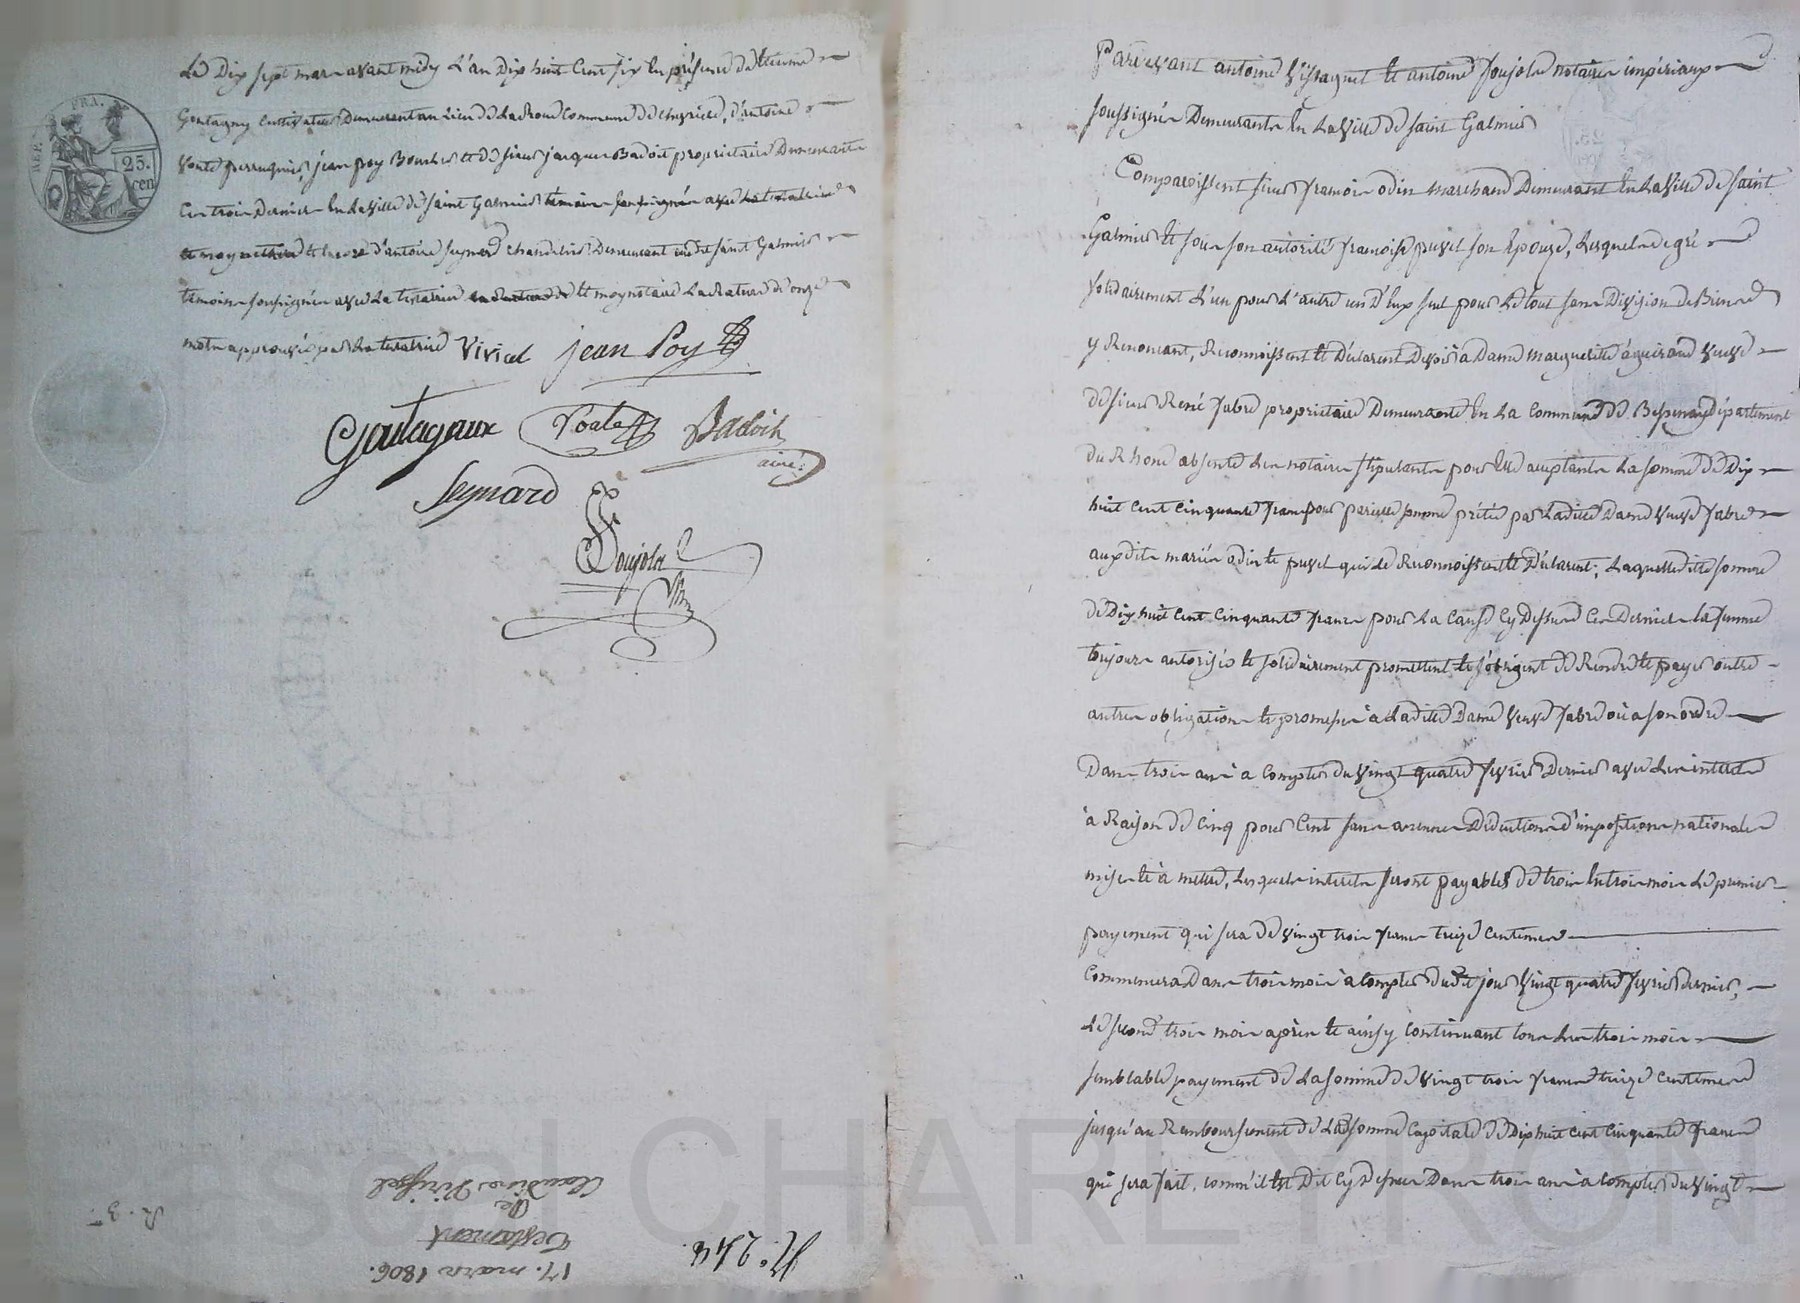 Le Dix sept mars avant midy L'an Dix huit Cent six En présence de Etienne
Goutagny Cultivateur Demeurant au Lieu de Commune de Chevrieres, d'antoine
Voute perruquier, jean poy Boucher et de sieur jacques Badoit propriétaire Demeurants
Ces trois Derniers En la Ville de Saint Galmier témoins soussignés avec la testatrice
et moy notaire et encore d'antoine seynard chandelier Demeurant audit saint Galmier
témoins soussignés avec La testatrice et moy notaire La rature de onze
mots approuvée par La testatrice Viricel jean Poy
Goutagaux Voute Badoit
ainé
Seynard
Poujola
REP. FRA.
25.
cen
R. 3
17. mars 1806.
Testament
De
Claudine Virissel
N.º 244.
Pardevant antoine et antoine Poujola notaires impériaux
soussignés Demeurants En La Ville de Saint Galmier
Comparoissent sieur francois odin marchand Demeurant En La Ville de Saint
Galmier et sous son autorité francoise puvel son Epouze, Lesquels de gré
solidairement L'un pour L'autre un D'Eux seul pour Le tout sans Division de Biens
y Renoncant, Reconnoissent et Déclarent Devoir à Dame marguerite aguiraud Veuve
de sieur René fabre propriétaire Demeurante En La Commune de Bessenay département
du Rhone absente Les notaires stipulants pour Elle acceptants La somme de Dix
huit cent cinquante francs pour pareille somme prétée par Ladite Dame Veuve fabre
auxdits mariés odin et puvel qui le Reconnoissent et Déclarent, Laquelle dite somme
de Dix huit Cent Cinquante francs pour La Cause Cy Dessus Ces Derniers La femme
toujours autorisée et solidairement promettent et s'obligent de Rendre et payer outre
autres obligations et promesses à Ladite Dame Veuve fabre ou à son ordre
Dans trois ans à Compter du Vingt quatre fevrier Dernier avec Les interets
à Raison de Cinq pour Cent sans aucunes Déductions d'impositions nationales
mises et à mettre, Lesquels interets seront payables de trois En trois mois Le premier
payement qui sera de Vingt trois francs treize Centimes
Commencera Dans trois mois à Compter dudit jour Vingt quatre fevrier dernier,
Le second trois mois après et ainsy Continuant tous Les trois mois
semblable payement de La somme de Vingt trois francs treize Centimes
jusqu'au Remboursement de La somme Capitale de Dix huit Cent Cinquante francs
qui sera fait, comm'il Est Dit Cy Dessus Dans trois ans à Compter du Vingt
CHAREYRON